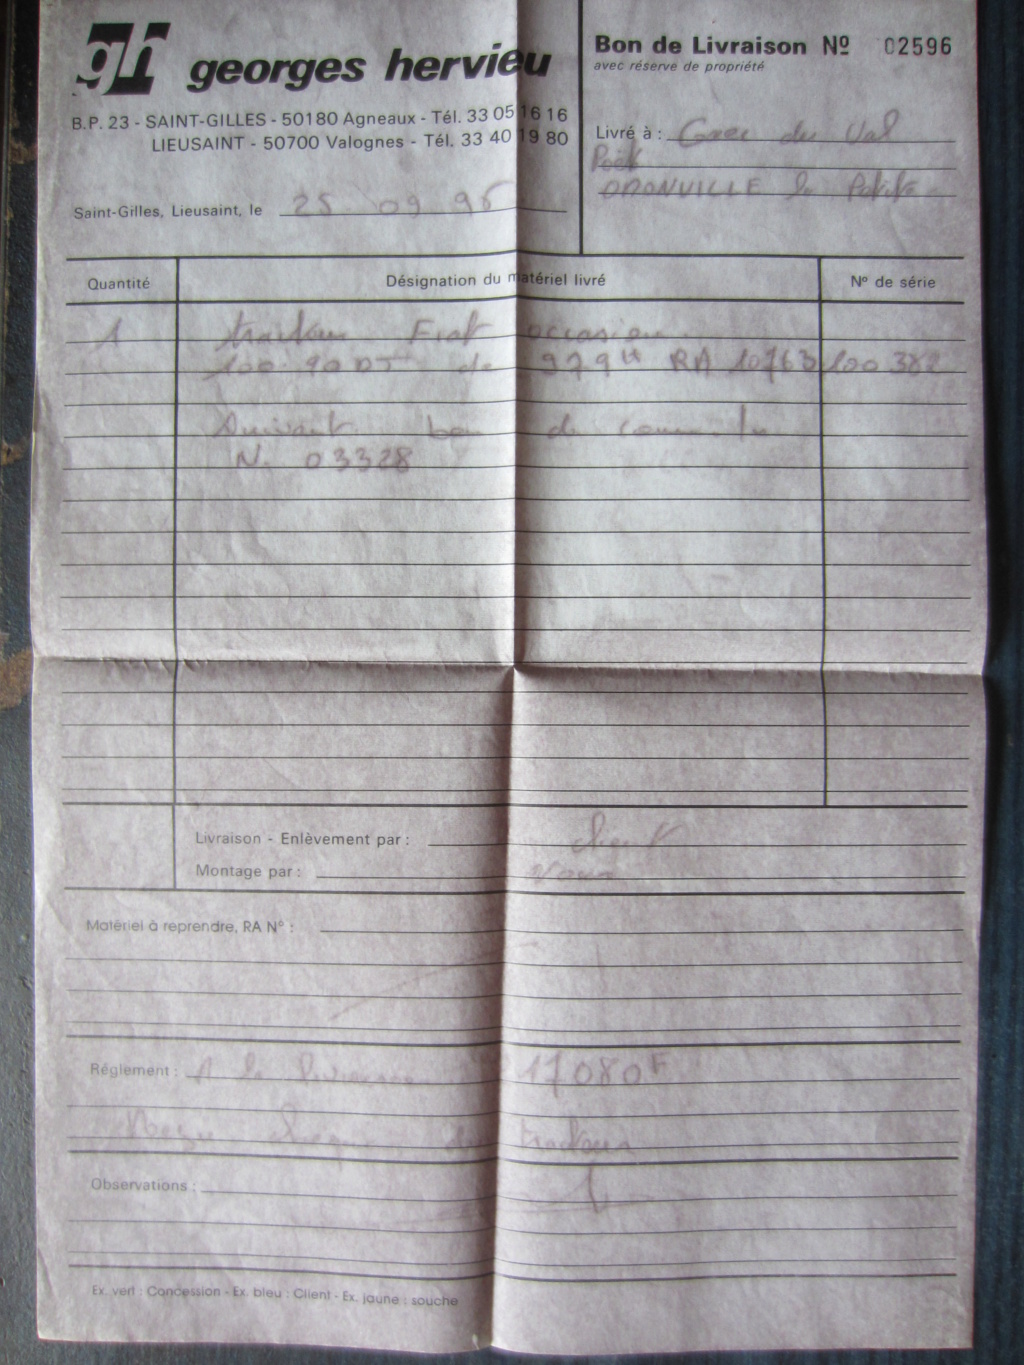 gh georges hervieu
B.P. 23 - SAINT-GILLES - 50180 Agneaux - Tél. 33 05 16 16
LIEUSAINT - 50700 Valognes - Tél. 33 40 19 80
Saint-Gilles, Lieusaint, le 25 09 95
Bon de Livraison Nº 02596
avec réserve de propriété
Livré à : Gaec du Val
OMONVILLE la Petite
Quantité Désignation du matériel livré Nº de série
1 tracteur Fiat occasion
100.90 DT de 979 H RA 10763 100 382
Suivant bon de commande
N. 03328
Livraison - Enlèvement par : client
Montage par : Nous
Matériel à reprendre, RA Nº :
Réglement : A la livraison 17080F
Reçu chèque du tracteur
Observations :
Ex. vert : Concession - Ex. bleu : Client - Ex. jaune : souche